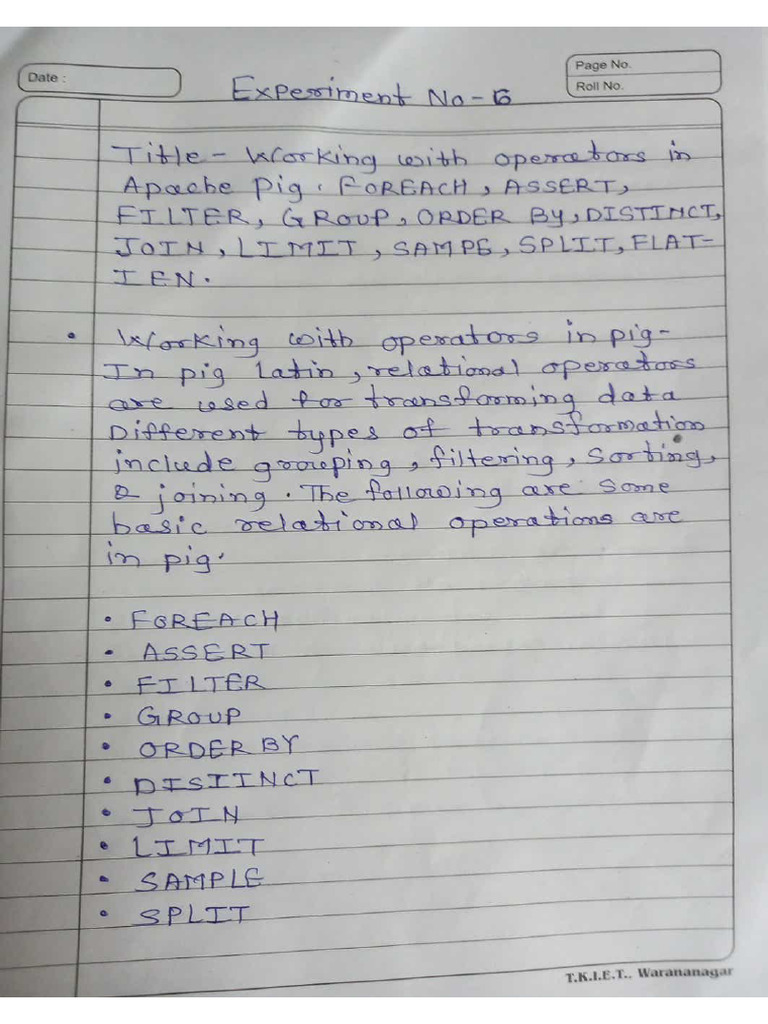 Date :
Page No.
Roll No.
Experiment No - 6
Title - Working with operators in
Apache Pig. FOREACH, ASSERT,
FILTER, GROUP, ORDER BY, DISTINCT,
JOIN, LIMIT, SAMPE, SPLIT, FLAT-
TEN.
• Working with operators in pig-
In pig latin, relational operators
are used for transforming data
Different types of transformation
include grouping, filtering, sorting,
& joining. The following are some
basic relational operations are
in pig.
• FOREACH
• ASSERT
• FILTER
• GROUP
• ORDER BY
• DISTINCT
• JOIN
• LIMIT
• SAMPLE
• SPLIT
T.K.I.E.T.. Warananagar